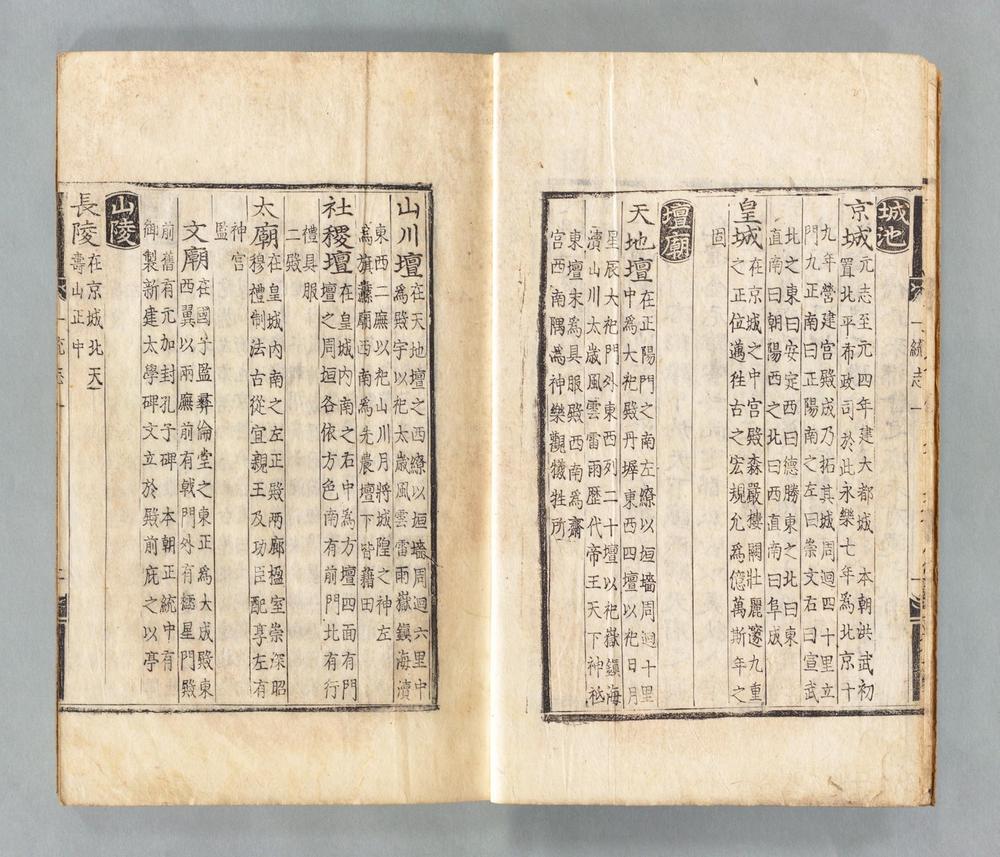 城池
京城元志至元四年建大都城 本朝洪武初
置北平布政司於此永樂七年為北京十
九年營建宮殿成乃拓其城周迴四十里立
門九正南曰正陽南之左曰崇文右曰宣武
北之東曰安定西曰德勝東之北曰東
直南曰朝陽西之北曰西直南曰阜成
皇城在京城之中宮殿森嚴樓闕壯麗邃九重
之正位邁往古之宏規允為億萬斯年之
固
壇廟
天地壇在正陽門之南左繚以垣墻周迴十里
中為大祀殿丹墀東西四壇以祀日月
星辰大祀門外東西列二十壇以祀嶽鎮海
瀆山川太歲風雲雷雨歷代帝王天下神祗
東壇末為具服殿西南為齋
宮西南隅為神樂觀犧牲所
山川壇在天地壇之西繚以垣墻周迴六里中
為殿宇以祀太歲風雲雷雨嶽鎮海瀆
東西二廡以祀山川月將城隍之神左
為旗纛廟西南為先農壇下皆藉田
社稷壇在皇城内南之右中為方壇四面有門
壇之周垣各依方色南有前門北有行
禮具服
二殿
太廟在皇城内南之左正殿兩廊楹室崇深昭
穆禮制法古從宜親王及功臣配享左有
神宮
監
文廟在國子監彞倫堂之東正為大成殿東
西翼以兩廡前有戟門外有櫺星門殿
前舊有元加封孔子碑本朝正統中有
御製新建太學碑文立於殿前庇之以亭
山陵
長陵在京城北天
壽山正中
一統志一